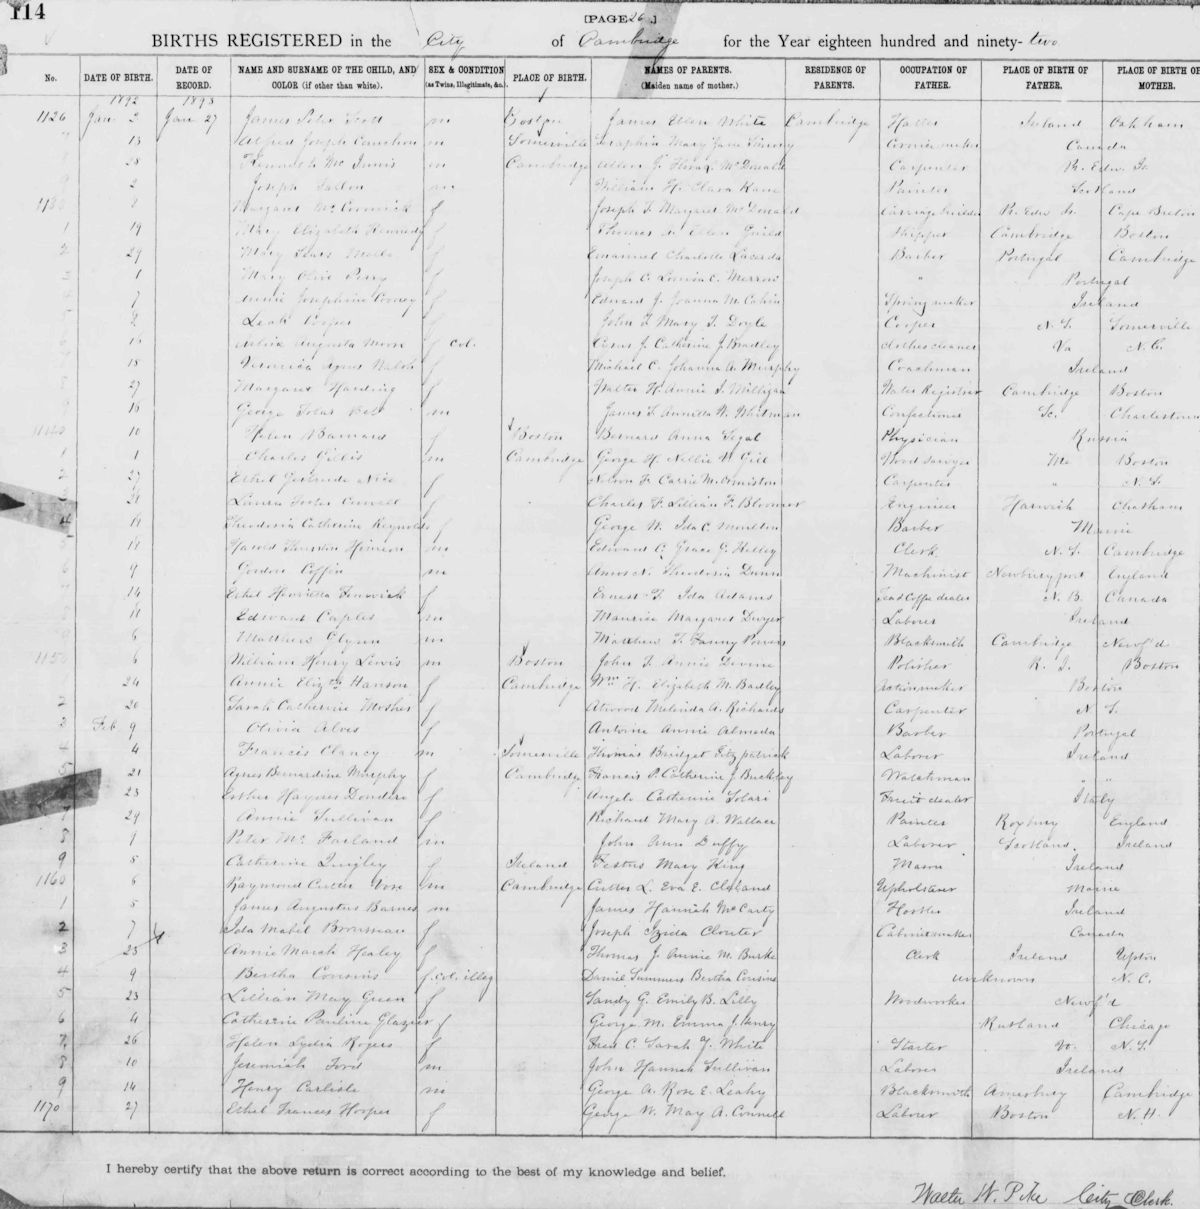 114
[PAGE 26.]
BIRTHS REGISTERED in the City of Cambridge for the Year eighteen hundred and ninety-two
No. DATE OF BIRTH. DATE OF RECORD. NAME AND SURNAME OF THE CHILD, AND COLOR (if other than white). SEX & CONDITION (as Twins, Illegitimate, &c.) PLACE OF BIRTH. NAMES OF PARENTS. (Maiden name of mother.) RESIDENCE OF PARENTS. OCCUPATION OF FATHER. PLACE OF BIRTH OF FATHER. PLACE OF BIRTH OF MOTHER.
1892 1893
1126 Jan 2 Jan 27 James Peter Scott m Boston James Ellen White Cambridge Hatter Ireland Oakham
13 Alfred Joseph m Somerville Seraphin Mary Jane Canada
8 28 Kenneth McInnis m Cambridge Allen J. McDonald Carpenter Pr. Edw. Is.
9 2 Joseph Fallon m William H. Clara Kane Painter Scotland
1130 8 Margaret McCormick f Joseph F. Margaret McDonald Carriage builder Pr. Edw. Is. Cape Breton
1 19 Mary Elizabeth Kennedy f Thomas A. Ellen Guild Shipper Cambridge Boston
2 29 Mary f Emanuel Charlotte Lacerda Barber Portugal Cambridge
3 1 Mary Olive Perry f Joseph C. Louisa C. Merrow " Portugal
4 7 Annie Josephine Cooney f Edward J. Joanna M. Ireland
5 2 Leah Cooper f John F. Mary T. Doyle Cooper N.S. Somerville
6 16 Augusta Moore f col. J. Catherine J. Bradley clothes cleaner Va N.C.
7 18 Veronica Agnes Walsh f Michael C. Johanna A. Murphy Coachman Ireland
8 27 Margaret Harding f Walter H. Annie I. Milligan Water Registrar Cambridge Boston
9 16 George m James F. Annetta W. Whitman Confectioner Charlestown
1140 10 Helen Barnard f Boston Bernard Anna Segal Physician Russia
1 1 Charles Gillis m Cambridge George H. Nellie W. Gill Wood sawyer Me Boston
2 27 Ethel Gertrude f Nelson F. Carrie M. Ormiston Carpenter " N.S.
3 21 Laura f Charles F. Lillian F. Bloomer Engineer Harwich Chatham
4 14 Theodosia Catherine Reynolds f George W. Ida C. Moulton Barber Maine
5 14 Harold Thurston m Edward C. Grace G. Kelley Clerk N.S. Cambridge
6 9 Gordon Coffin m Amos N. Theodosia Dunn Machinist Newburyport England
7 14 Ethel Henrietta Fenwick f Ernest F. Ida Adams Tea & Coffee dealer N.B. Canada
8 11 Edward Caples m Maurice Margaret Dwyer Laborer Ireland
9 6 Matthew Glynn m Matthew F. Fanny Powers Blacksmith Cambridge Newf'd
1150 6 William Henry Lewis m Boston John F. Annie Devine Polisher R.I. Boston
1 24 Annie Elizth Hanson f Cambridge Wm H. Elizabeth M. Badley Boston
2 20 Sarah Catherine Mosher f Atwood Melinda A. Richards Carpenter N.S.
3 Feb 9 Olivia Alves f Antoine Annie Almeda Barber Portugal
4 4 Francis Clancy m Somerville Thomas Bridget Fitzpatrick Laborer Ireland
5 21 Agnes Bernardine Murphy f Cambridge Francis P. Catherine J. Buckley Watchman " "
6 23 Esther Haynes Dondero f Angelo Catherine Solari Fruit dealer Italy
7 29 Annie Sullivan f Richard Mary A. Wallace Painter Roxbury England
8 9 Peter McFarland m John Ann Duffy Laborer Scotland Ireland
9 5 Catherine Quigley f Ireland Festus Mary King Mason Ireland
1160 6 Raymond Cutter Vose m Cambridge Cutter L. Eva E. Cleland Upholsterer Maine
1 5 James Augustus Barnes m James Hannah McCarty Hostler Ireland
2 7 Ida Mabel f Joseph Clouter Cabinetmaker Canada
3 23 Annie Marah Healey f Thomas J. Annie M. Burke Clerk Ireland Upton
4 9 Bertha Cousins f. col. illeg Daniel Summers Bertha Cousins unknown N.C.
5 23 Lillian May Green f Sandy G. Emily B. Lilly Woodworker Newf'd
6 4 Catherine Pauline Glazier f George M. Emma J. Henry Rutland Chicago
7 26 Helen Lydia Rogers f Fred C. Sarah J. White Starter Vt. N.S.
8 10 Jeremiah Ford m John Hannah Sullivan Laborer Ireland
9 14 Henry Carlisle m George A. Rose E. Leahy Blacksmith Amesbury Cambridge
1170 27 Ethel Frances Hooper f George W. May A. Connell Laborer Boston N.H.
I hereby certify that the above return is correct according to the best of my knowledge and belief.
Walter W. Pike City Clerk.